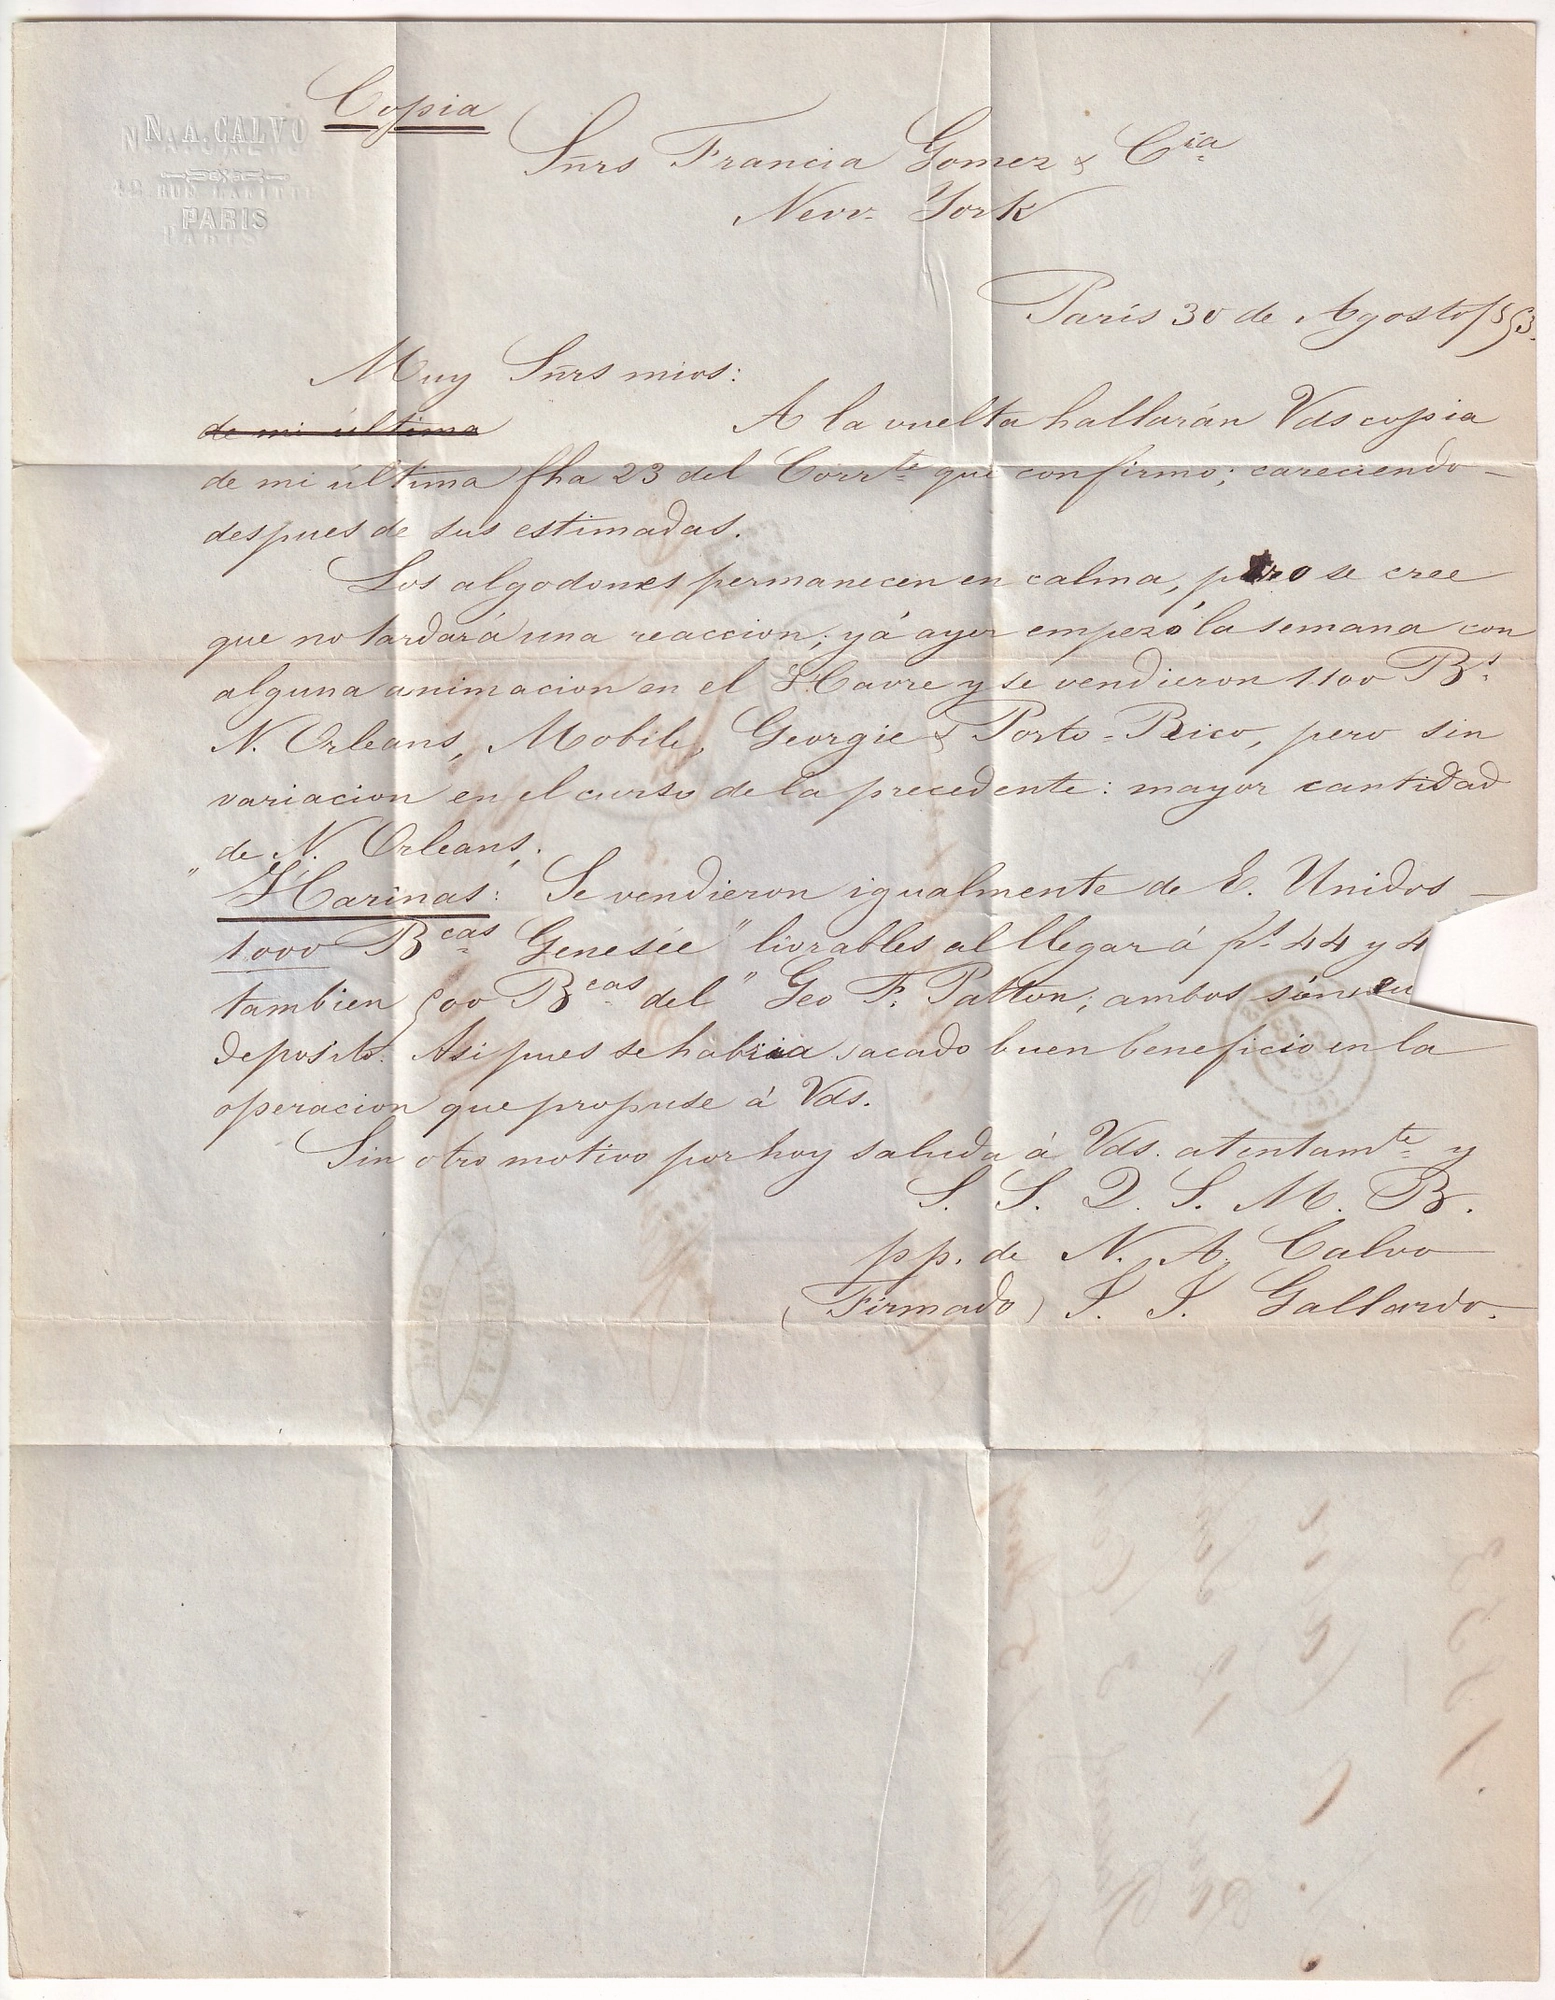 N. A. CALVO
42. RUE LAFITTE
PARIS
Copia
Sñrs Francia Gomez & Cia
New-York
Paris 30 de Agosto/853.
Muy Sñrs mios:
de mi última
A la vuelta hallarán Vds copia
de mi última fha 23 del Corrte que confirmo; careciendo
despues de sus estimadas.
Los algodones permanecen en calma, pero se cree
que no tardará una reaccion; yá ayer empezó la semana con
alguna animacion en el Havre y se vendieron 1100 Bs.
N. Orleans, Mobile, Georgie & Porto-Rico, pero sin
variacion en el curso de la precedente: mayor cantidad
de N. Orleans.
" Harinas: Se vendieron igualmente de E. Unidos
1000 Bcas "Genesée" livrables al llegar á ps 44 y 4
tambien 500 Bcas del "Geo F. Patton; ambos
deposito. Asi pues se habria sacado buen beneficio en la
operacion que propuse á Vds.
Sin otro motivo por hoy saluda á Vds. atentamte y
S. S. Q. S. M. B.
pp. de N. A. Calvo
(Firmado) J. J. Gallardo.